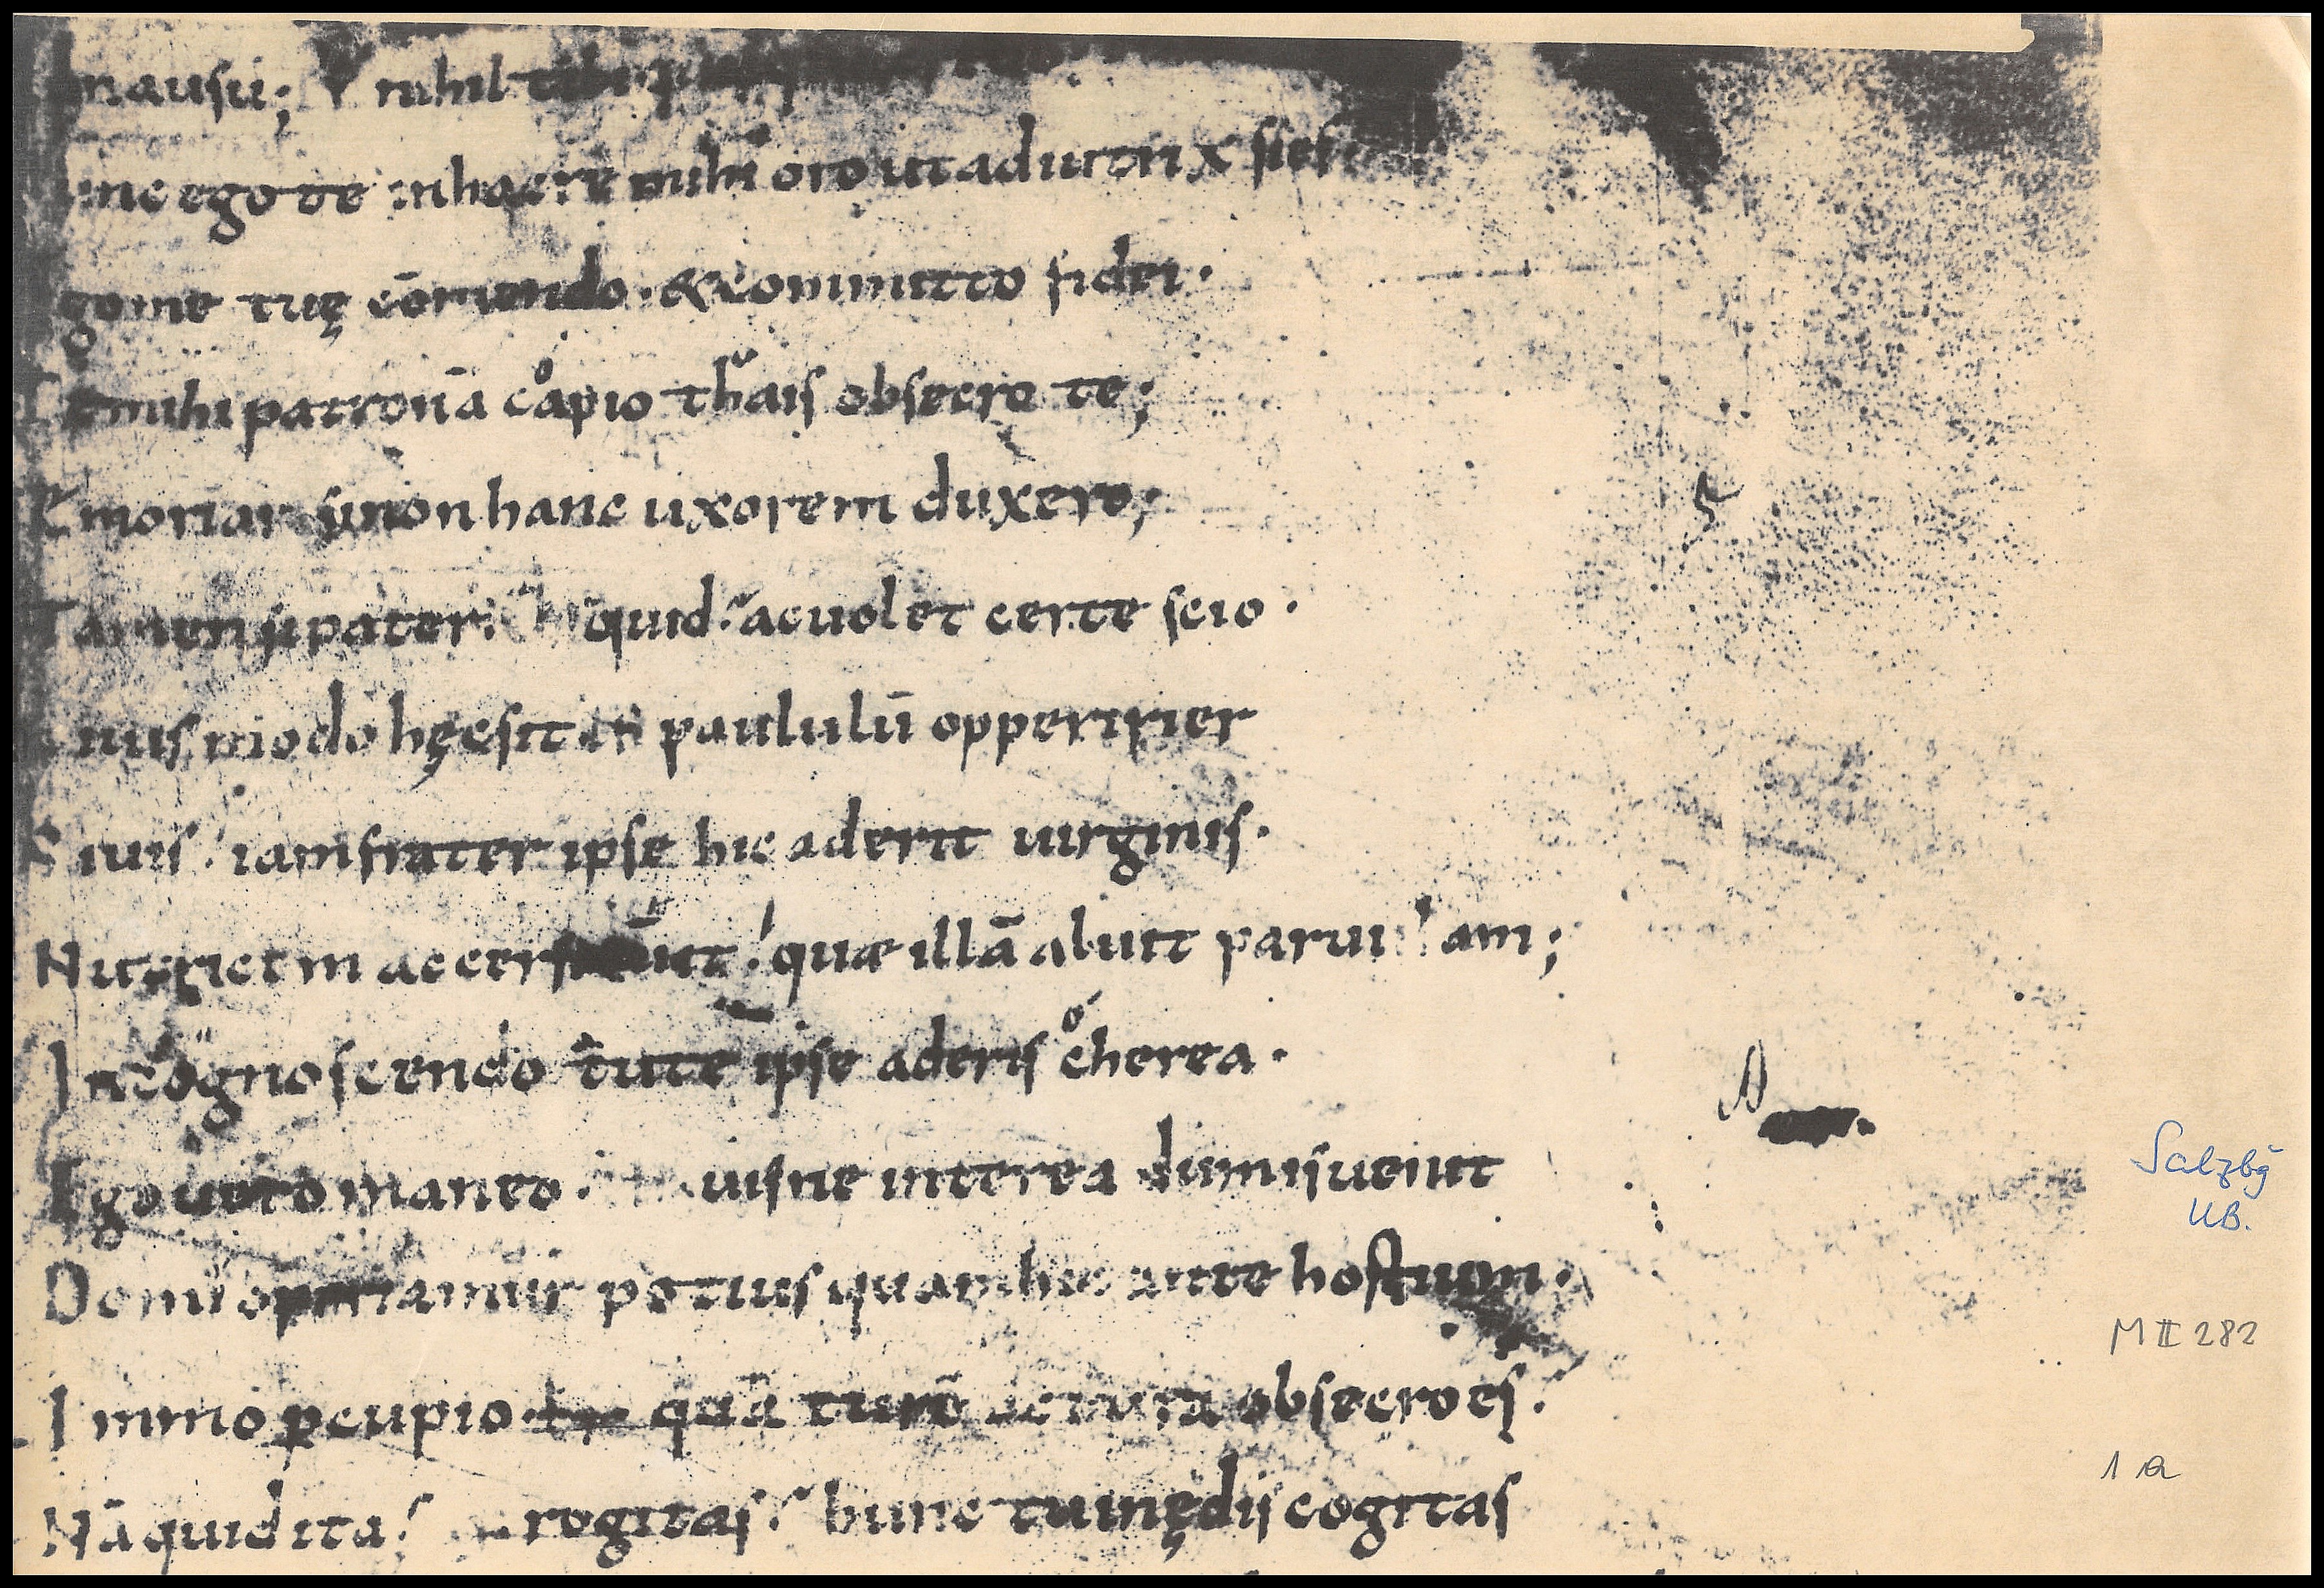 nausu; nihil
nunc ego te in hac re mihi oro ut adiutrix sies
go me tuę cōmendo · & committo fidei ·
mihi patronā capio thais obsecro te;
Emoriar si non hanc uxorem duxero;
Tamen si pater · quid? ac uolet certe scio ·
nuis modo hęc sit paululū opperirier
Si uis iam frater ipse hic aderit uirginis ·
Nutricem accersitum iit quæ illā aluit paruulam;
In cognoscendo tute ipse aderis cherea ·
Ego uero maneo · uisne interea dum is uenit
Domi opperiamur potius quam hic ante hostium ·
Immo ꝑcupio · quā tu rē actura obsecro es?
Nā quid ita? rogitas? hunc tu in ędis cogitas
Salzbg
UB.
M II 282
1 a